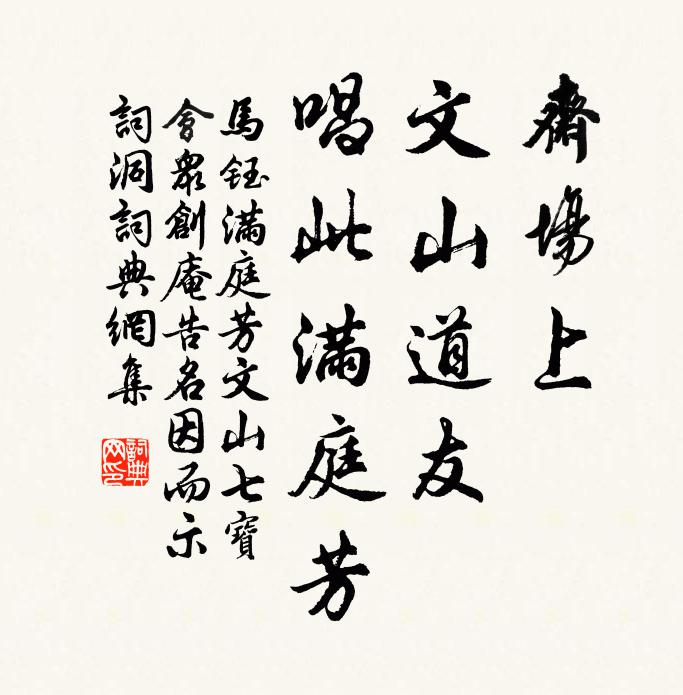 齋場上
文山道友
唱此滿庭芳
馬鈺滿庭芳文山七寶
會衆創庵告名因而示
詞洞詞典網集
詞典網印